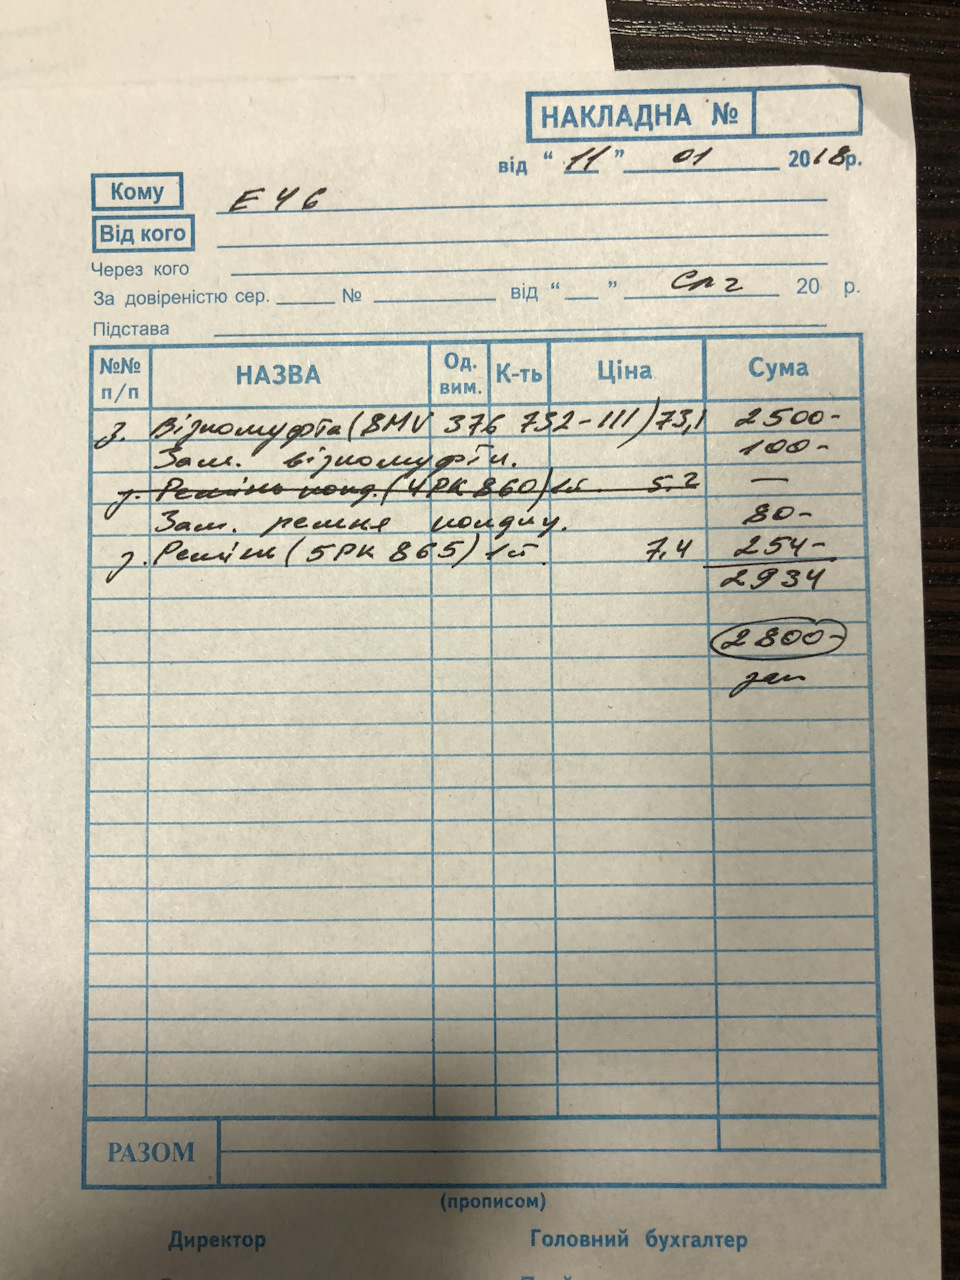 НАКЛАДНА №
від “ 11 ” 01 2018р.
Кому Е46
Від кого
Через кого
За довіреністю сер. № від “ ” 20 р.
Підстава
№№ п/п НАЗВА Од. вим. К-ть Ціна Сума
з. Візкомуфта (8MV 376 732-111) 73,1 2500-
Зам. візкомуфти. 100-
з. Ремінь конд. (4PK 860) 1шт 5.2 —
Зам. ремня кондиц. 80-
з. Ремінь (5PK 865) 1шт. 7,4 254-
2934
2800-
РАЗОМ
(прописом)
Директор Головний бухгалтер